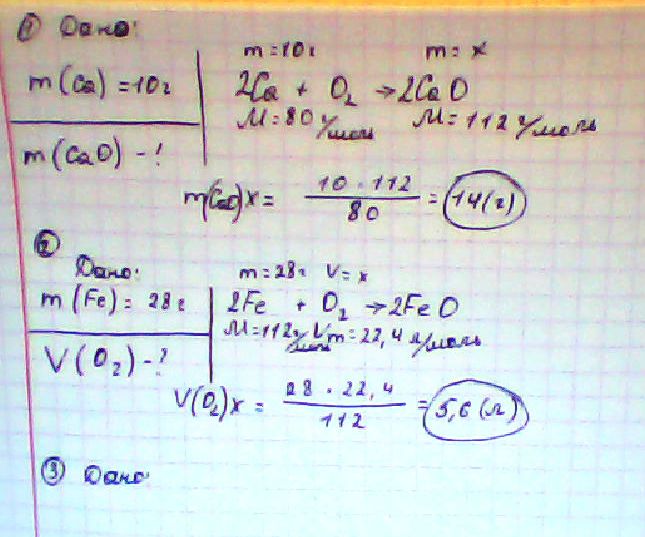 ① Дано:
m = 10 г m = x
m (Ca) = 10 г 2Ca + O₂ → 2CaO
M = 80 г/моль M = 112 г/моль
m (CaO) - ?
m(CaO) x = 10 · 112 / 80 = 14 (г)
②
Дано: m = 28 г V = x
m (Fe) = 28 г 2Fe + O₂ → 2FeO
M = 112 г/моль Vm = 22,4 л/моль
V (O₂) - ?
V(O₂) x = 28 · 22,4 / 112 = 5,6 (л)
③ Дано: